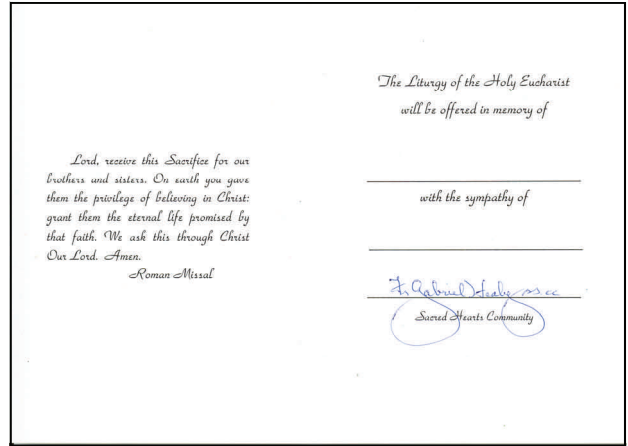 Lord, receive this Sacrifice for our
brothers and sisters. On earth you gave
them the privilege of believing in Christ:
grant them the eternal life promised by
that faith. We ask this through Christ
Our Lord. Amen.
Roman Missal
The Liturgy of the Holy Eucharist
will be offered in memory of
with the sympathy of
Fr Gabriel ss.cc
Sacred Hearts Community